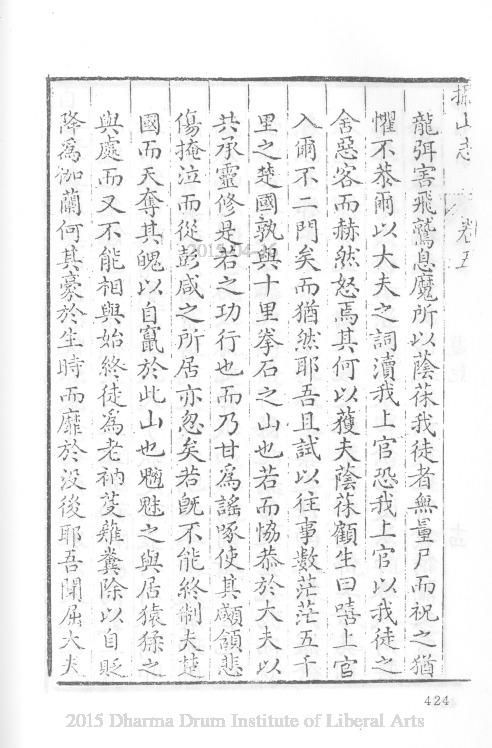 攝山志 卷五
龍弭害飛鷲息魔所以蔭葆我徒者無量尸而祝之猶
懼不恭爾以大夫之詞瀆我上官恐我上官以我徒之
舍惡客而赫然怒焉其何以蔭葆顧生曰嘻上官
入爾不二門矣而猶然耶吾且試以往事數茫茫五千
里之楚國孰與十里拳石之山也若而恊恭於大夫以
共承靈修是若之功行也而乃甘為謠啄使其顑頷悲
傷掩泣而從彭咸之所居亦忽矣若旣不能終制夫楚
國而天奪其魄以自竄於此山也魑魅之與居猿猱之
與處而又不能相與始終徒為老衲芟薙糞除以自貶
降為伽蘭何其豪於生時而靡於没後耶吾聞屈大夫
424
2015 Dharma Drum Institute of Liberal Arts